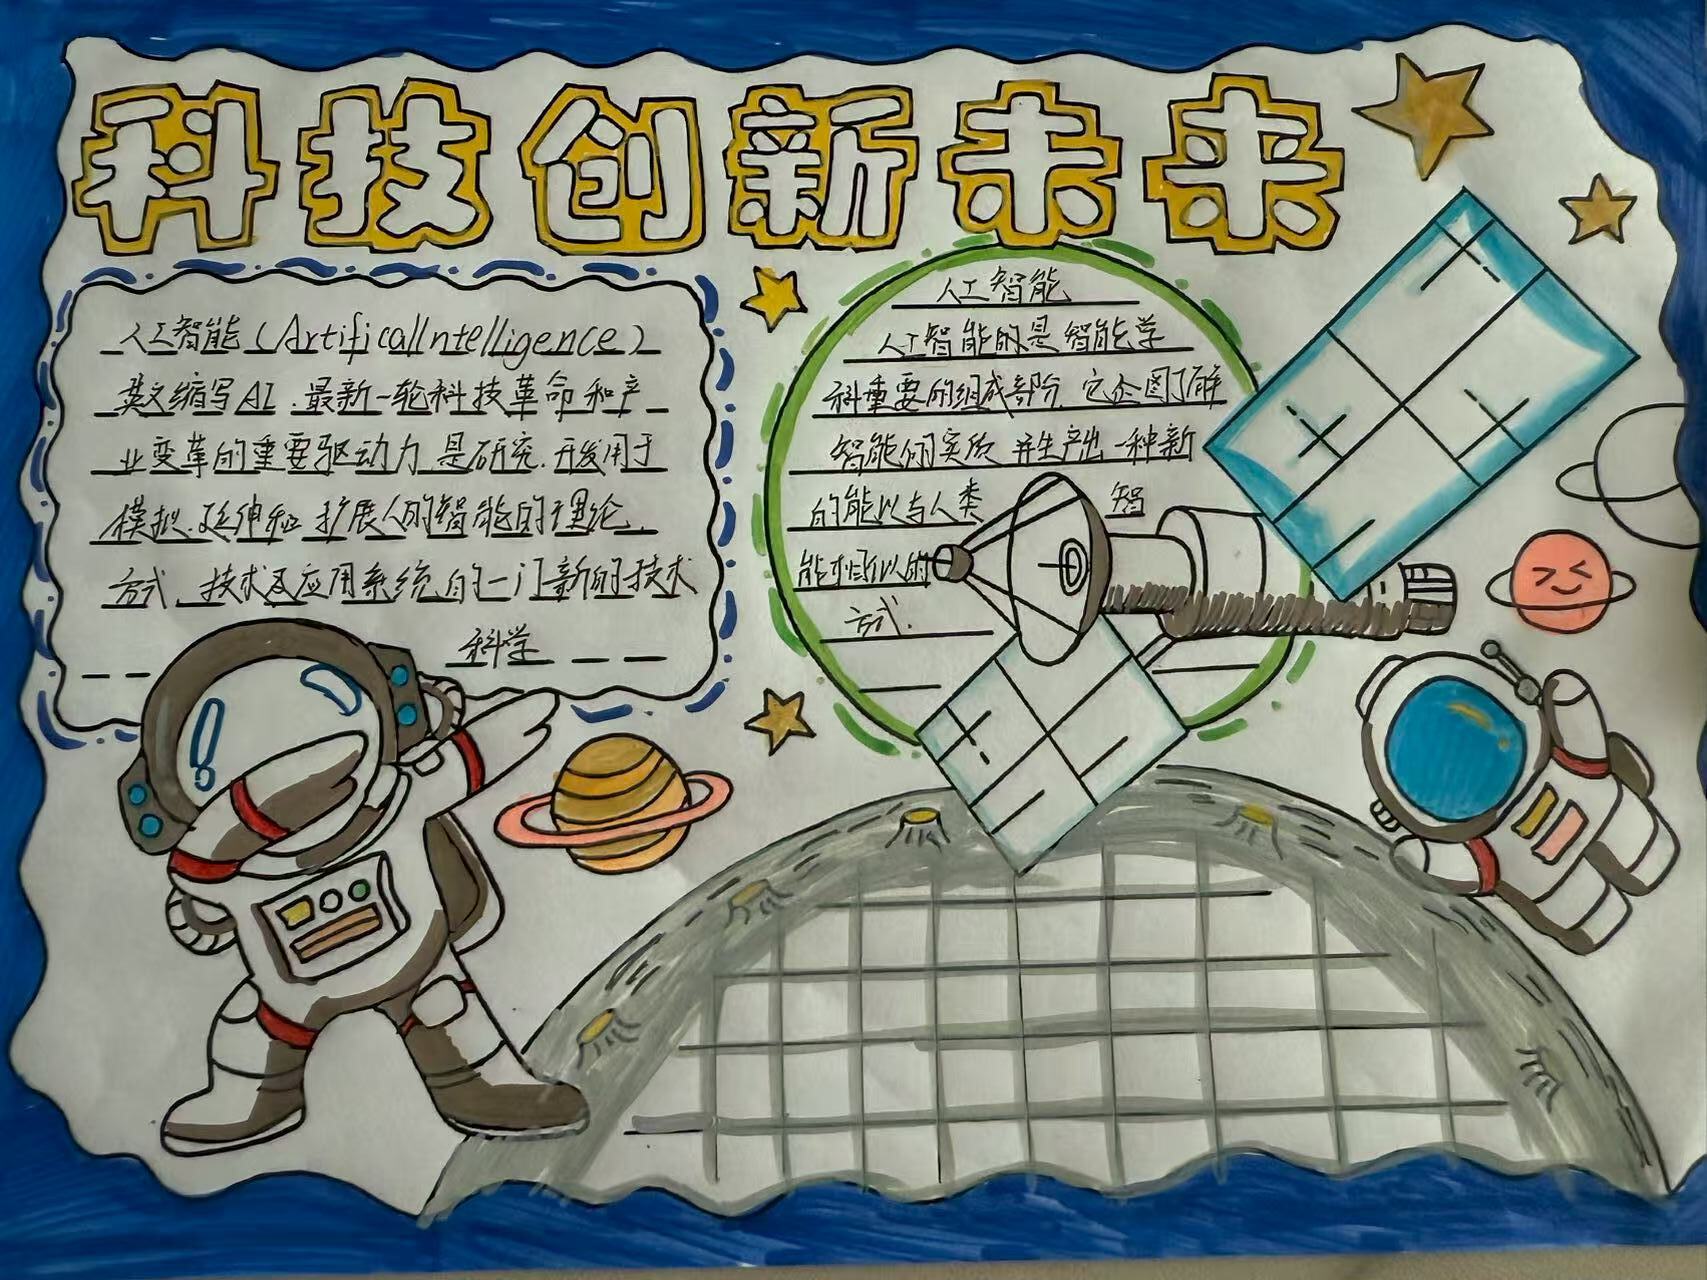 科技创新未来
人工智能（ArtificalIntelligence）
英文缩写AI.最新一轮科技革命和产
业变革的重要驱动力是研究.开发用于
模拟.延伸和扩展人的智能的理论.
方式.技术及应用系统的一门新的技术
科学
人工智能
人工智能的是智能学
科重要的组成部分.它企图了解
智能的实质并生产出一种新
的能以与人类 智
能相似的
方式.